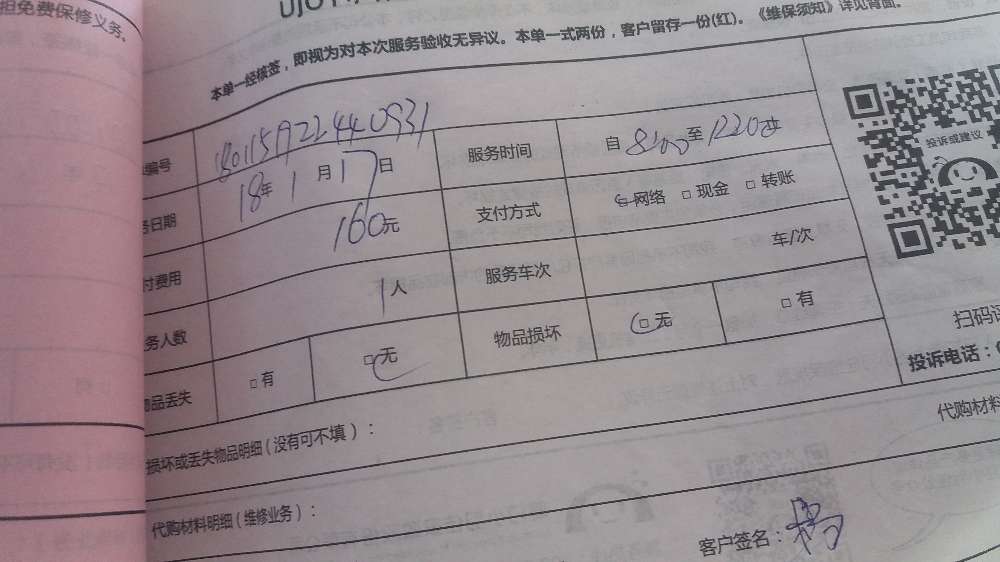 担免费保修义务。
本单一经核签，即视为对本次服务验收无异议。本单一式两份，客户留存一份(红)。《维保须知》详见背面。
编号 服务时间 自 8:00 至 1220
日期 18年 1月 17日 支付方式 网络 □现金 □转账
付费用 160元 服务车次 车/次
务人数 1人 物品损坏 □无 □有
物品丢失 □有 □无
损坏或丢失物品明细（没有可不填）：
代购材料
代购材料明细（维修业务）：
客户签名：杨
投诉或建议
扫码
投诉电话：